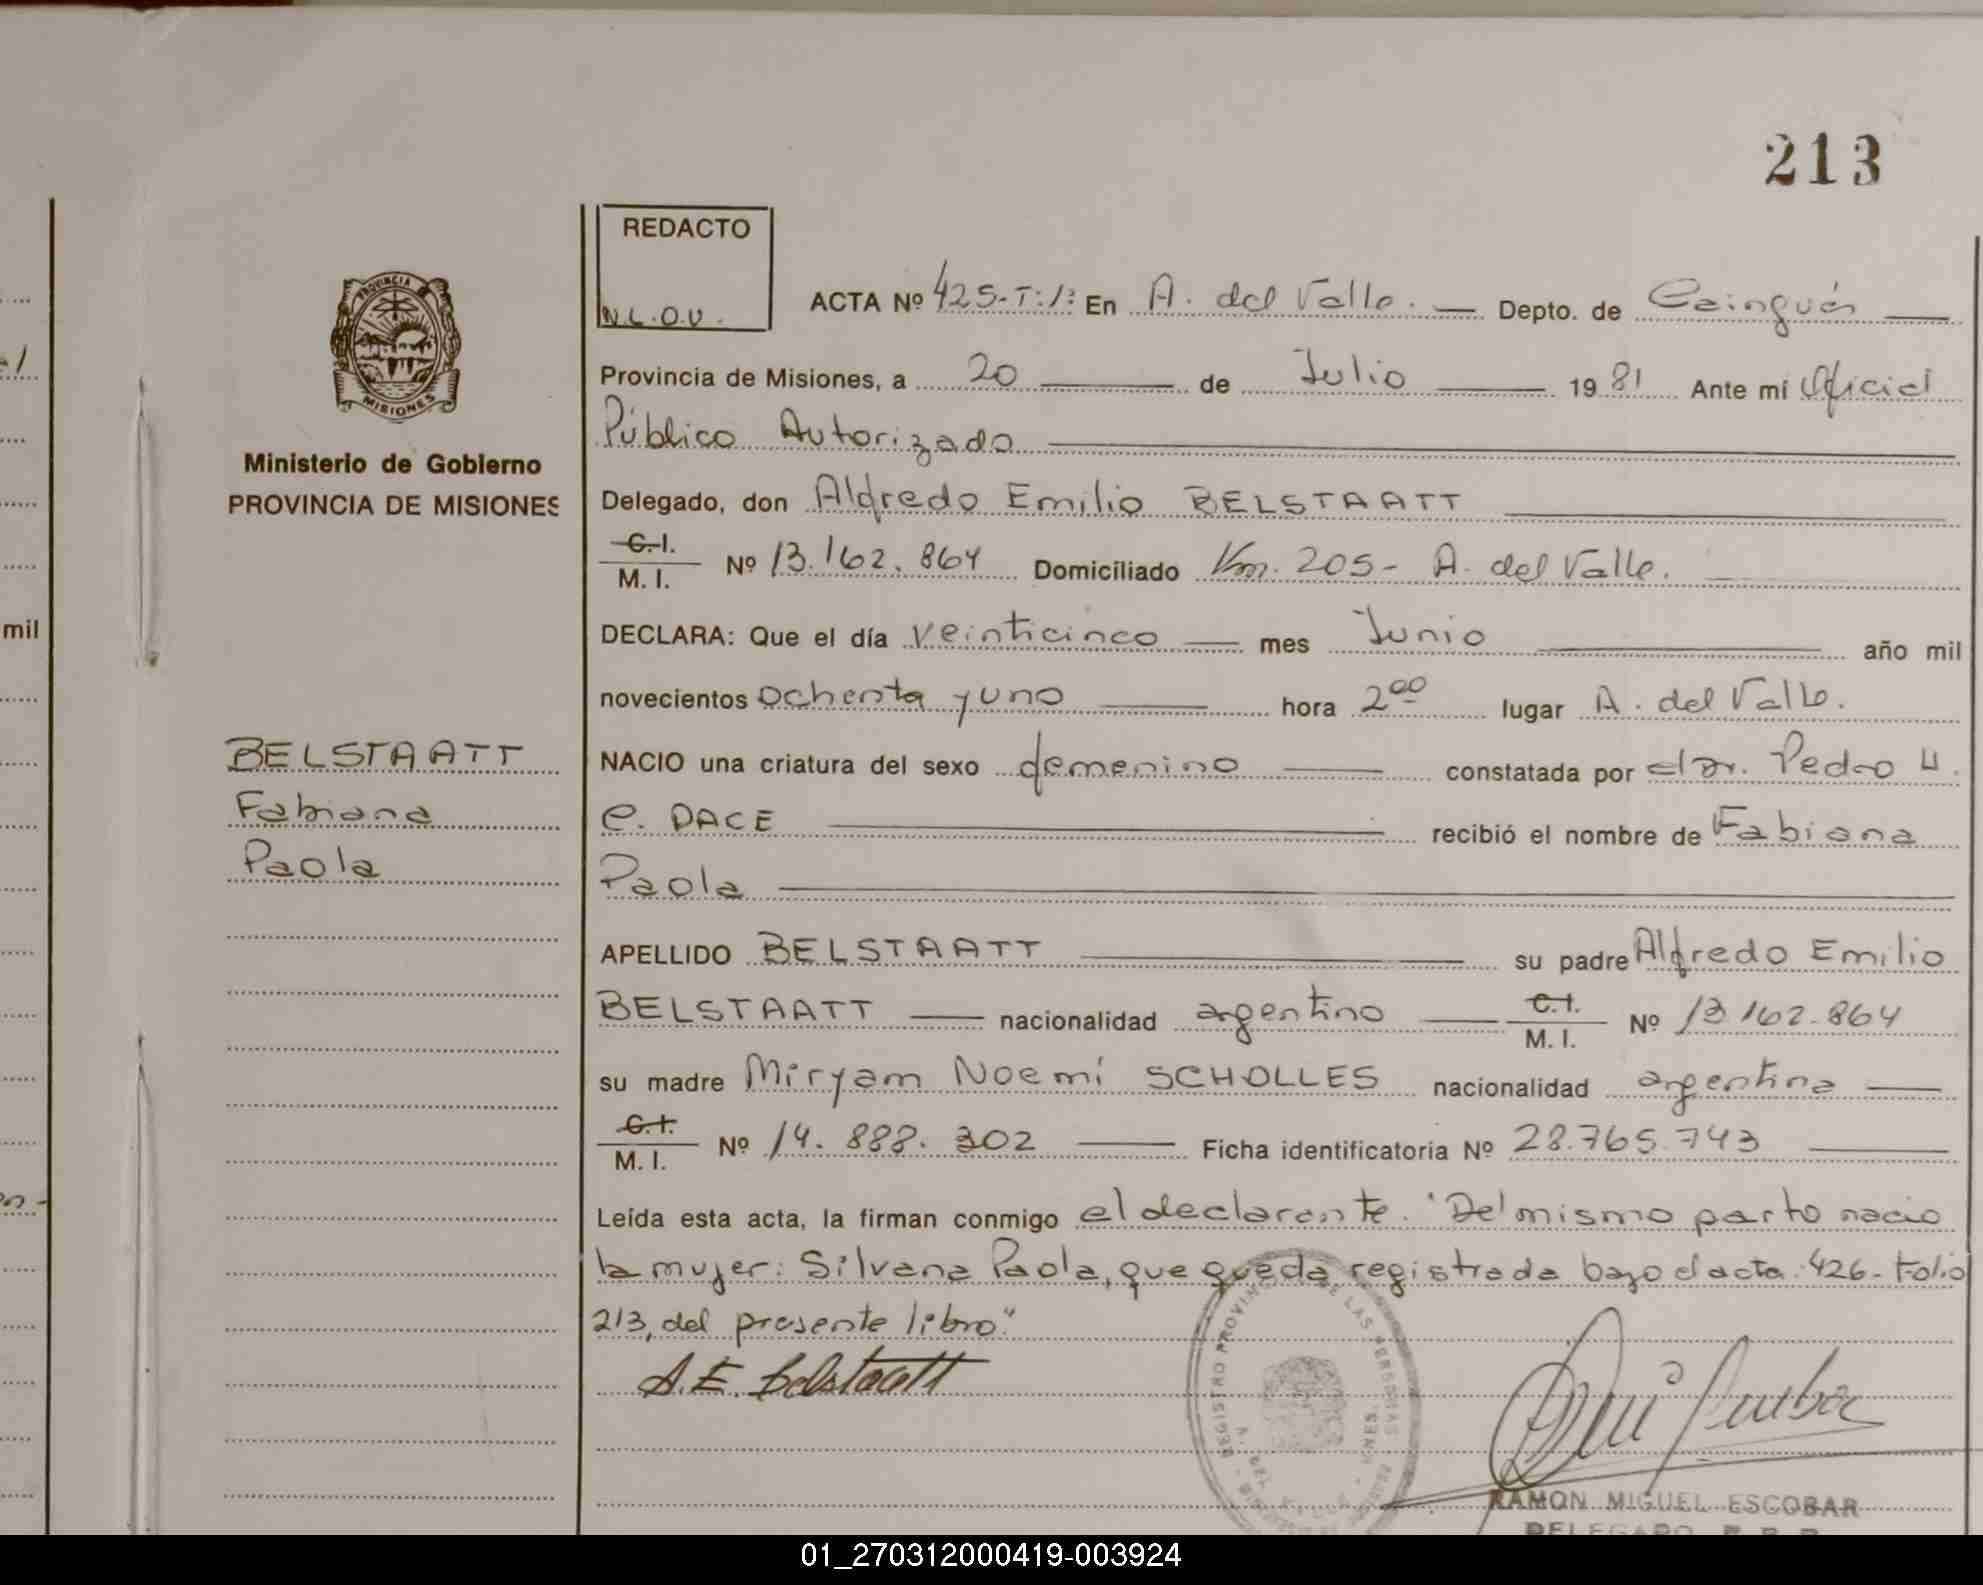 213
REDACTO
N.L.O.V.
PROVINCIA
MISIONES
Ministerio de Gobierno
PROVINCIA DE MISIONES
BELSTAATT
Fabiana
Paola
ACTA Nº 425-T:1: En A. del Valle. Depto. de Cainguás
Provincia de Misiones, a 20 de Julio 1981 Ante mí Oficial
Público Autorizado
Delegado, don Alfredo Emilio BELSTAATT
C.I.
M. I. Nº 13.162.864 Domiciliado Km. 205- A. del Valle.
DECLARA: Que el día veinticinco mes Junio año mil
novecientos ochenta y uno hora 2 00 lugar A. del Valle.
NACIO una criatura del sexo femenino constatada por el Dr. Pedro H.
C. DACE recibió el nombre de Fabiana
Paola
APELLIDO BELSTAATT su padre Alfredo Emilio
BELSTAATT nacionalidad argentino C.I.
M. I. Nº 13.162.864
su madre Miryam Noemí SCHOLLES nacionalidad argentina
C.I.
M. I. Nº 14.888.302 Ficha identificatoria Nº 28.765.743
Leída esta acta, la firman conmigo el declarante. "Del mismo parto nacio
la mujer: Silvana Paola, que queda registrada bajo el acta. 426- Folio
213, del presente libro"
A.E. Belstaatt
REGISTRO PROVINCIAL DE LAS PERSONAS
RAMON MIGUEL ESCOBAR
DELEGADO R. P. P.
mil
01_270312000419-003924